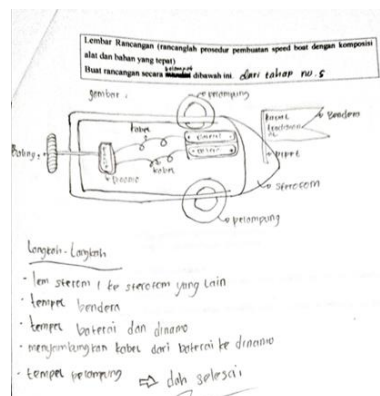 Lembar Rancangan (rancanglah prosedur pembuatan speed boat dengan komposisi
alat dan bahan yang tepat)
Buat rancangan secara kelompok dibawah ini. dari tahap no. 5
gambar :
pelampung
kabel
Bendera
Baling"
pipet
Dinamo
kabel
sterofom
pelampung
Langkah-Langkah
- lem sterofom 1 ke sterofom yang lain
- tempel bendera
- tempel baterai dan dinamo
- menyambungkan kabel dari baterai ke dinamo
- tempel pelampung ⇒ dah selesai